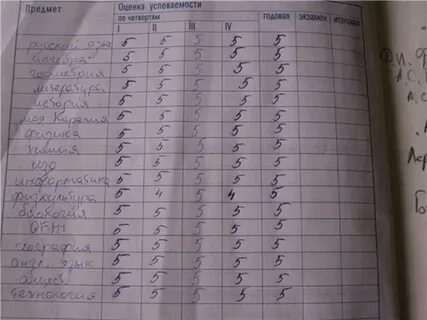 Предмет Оценка успеваемости
по четвертям годовая экзамен итоговая
I II III IV
русский язык 5 5 5 5 5
алгебра 5 5 5 5 5
геометрия 5 5 5 5 5
литература 5 5 5 5 5
история 5 5 5 5 5
мод Карелия 5 5 5 5 5
физика 5 5 5 5 5
химия 5 5 5 5 5
изо 5 5 5 5 5
информатика 5 5 5 5 5
физкультура 5 4 5 4 5
биология 5 5 5 5 5
ОБЖ 5 5 5 5 5
география 5 5 5 5 5
англ. язык 5 5 5 5 5
5 5 5 5 5
технология 5 5 5 5 5